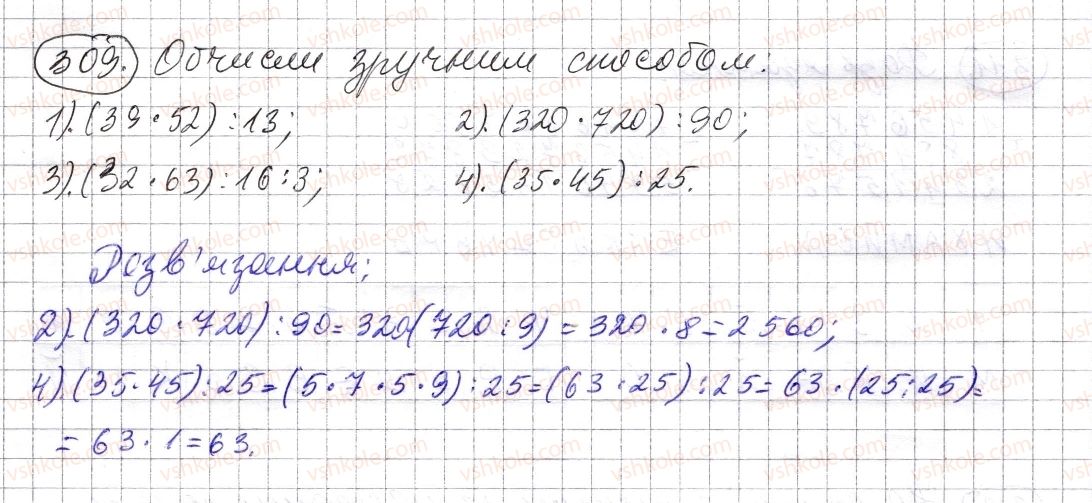 309. Обчисли зручним способом:
1). (39 · 52) : 13;    2). (320 · 720) : 90;
3). (32 · 63) : 16 : 3;    4). (35 · 45) : 25.
Розв'язання;
2). (320 · 720) : 90 = 320 (720 : 9) = 320 · 8 = 2 560;
4). (35 · 45) : 25 = (5 · 7 · 5 · 9) : 25 = (63 · 25) : 25 = 63 · (25 : 25) =
= 63 · 1 = 63.